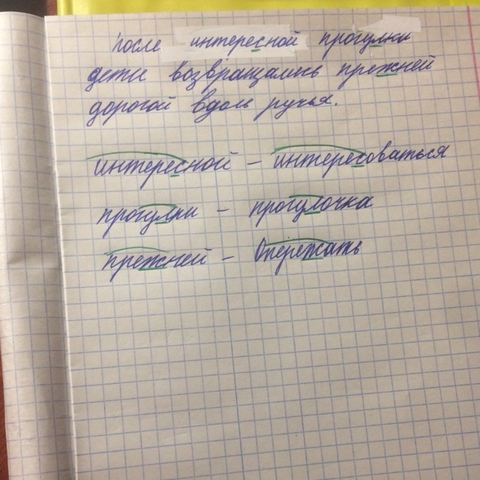 После интересной прогулки
дети возвращались прежней
дорогой вдоль ручья.
интересной – интересоваться
прогулки – прогулочка
прежней – Опережать